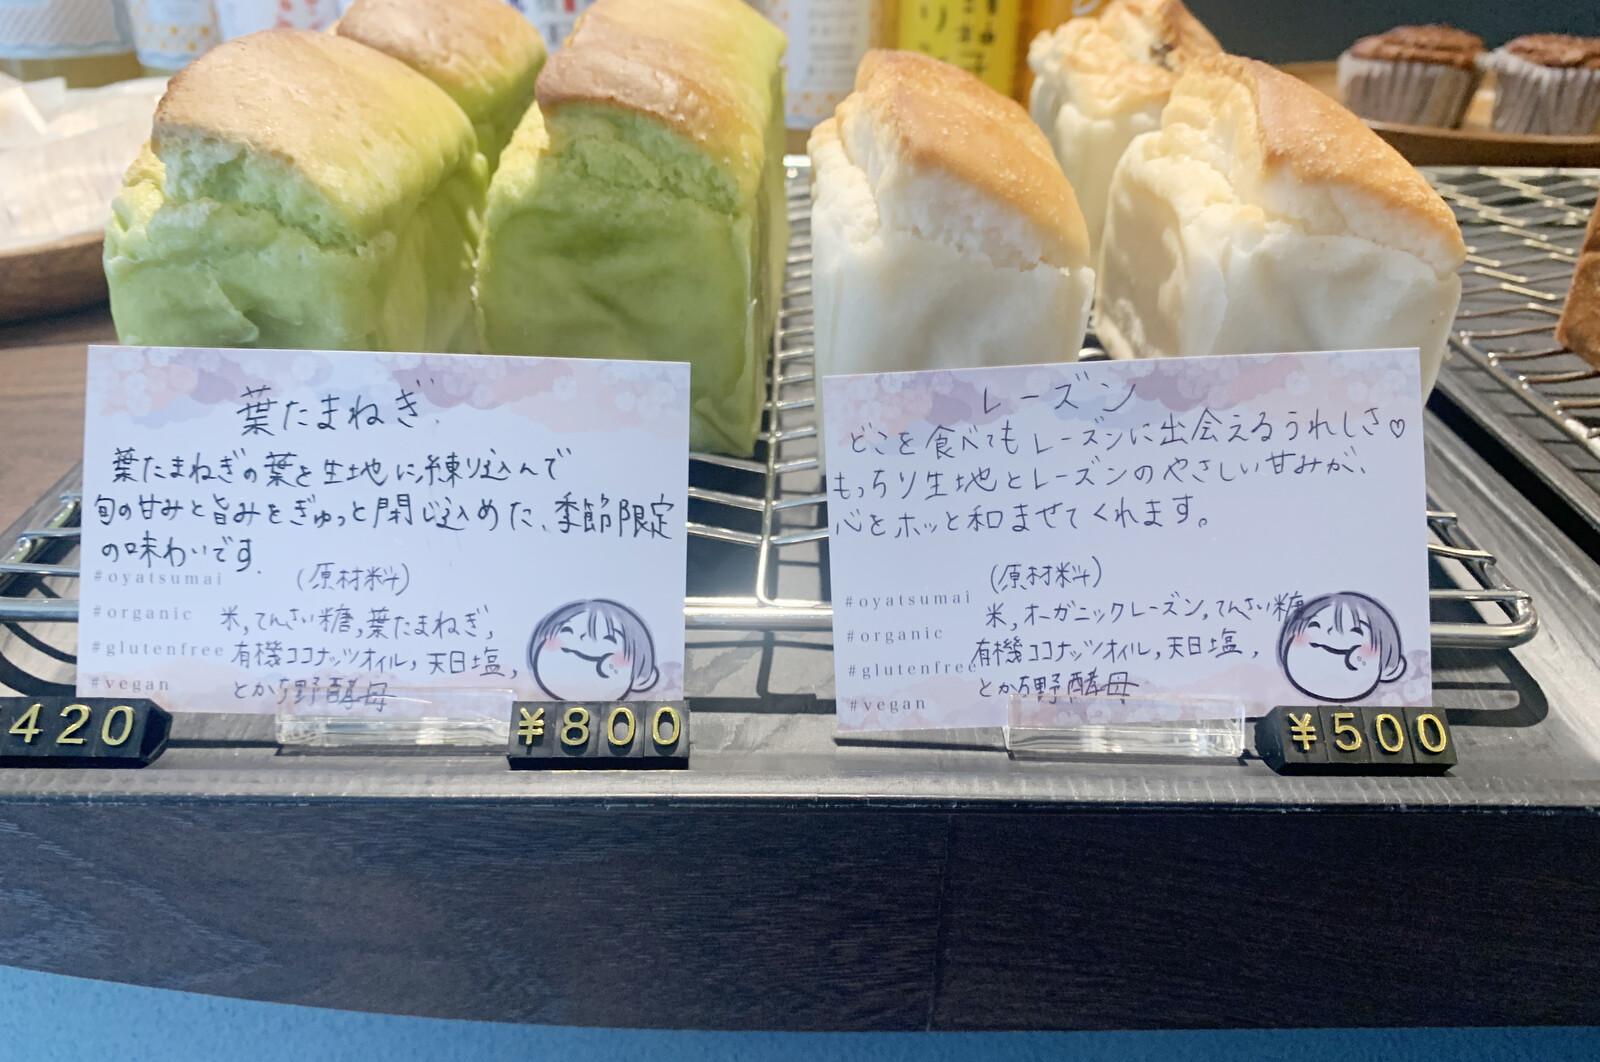 葉たまねぎ
葉たまねぎの葉を生地に練り込んで
旬の甘みと旨みをぎゅっと閉じ込めた、季節限定
の味わいです.
(原材料)
米,てんさい糖,葉たまねぎ,
有機ココナッツオイル,天日塩,
とかち野酵母
#oyatsumai
#organic
#glutenfree
#vegan
420
¥800
レーズン
どこを食べてもレーズンに出会えるうれしさ♡
もっちり生地とレーズンのやさしい甘みが、
心をホッと和ませてくれます。
(原材料)
米,オーガニックレーズン,てんさい糖
有機ココナッツオイル,天日塩,
とかち野酵母
#oyatsumai
#organic
#glutenfree
#vegan
¥500